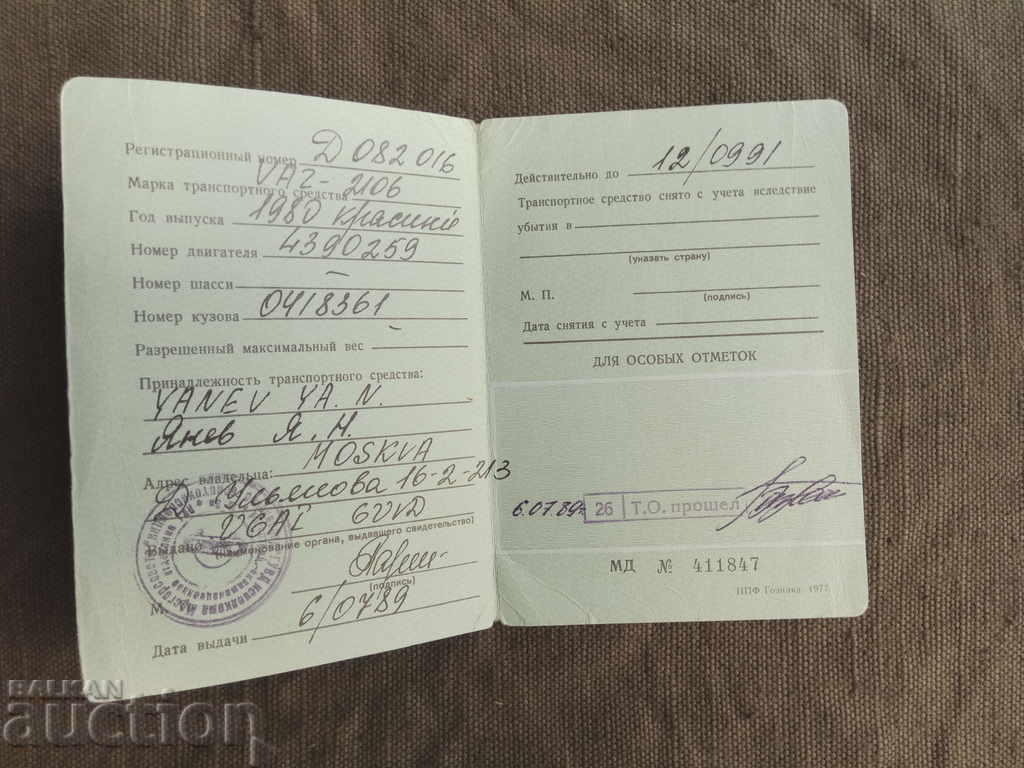 Регистрационный номер Д 082 016
Марка транспортного средства VAZ-2106
Год выпуска 1980 красный
Номер двигателя 4390259
Номер шасси —
Номер кузова 0418361
Разрешенный максимальный вес —
Принадлежность транспортного средства:
YANEV YA. N.
Янев Я. Н.
Адрес владельца: MOSKVA
Д. Ульянова 16-2-213
Выдано UGAI GUVD
(наименование органа, выдавшего свидетельство)
(подпись)
М.
Дата выдачи 6/0789
Действительно до 12/0991
Транспортное средство снято с учета вследствие
убытия в
(указать страну)
М. П.
(подпись)
Дата снятия с учета
ДЛЯ ОСОБЫХ ОТМЕТОК
6.07.89г. 26 Т.О. прошел
МД № 411847
ППФ Гознака. 1977.
BALKAN
auction